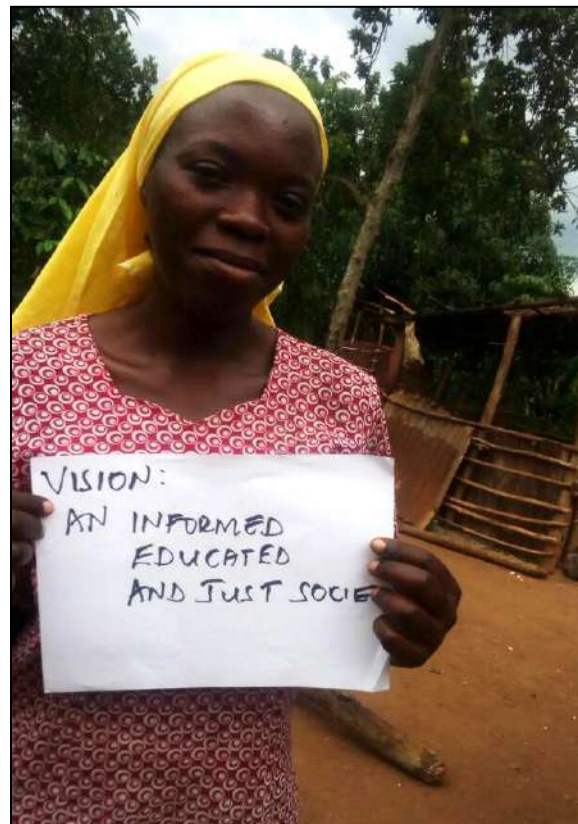 VISION:
AN INFORMED
EDUCATED
AND JUST SOCIE